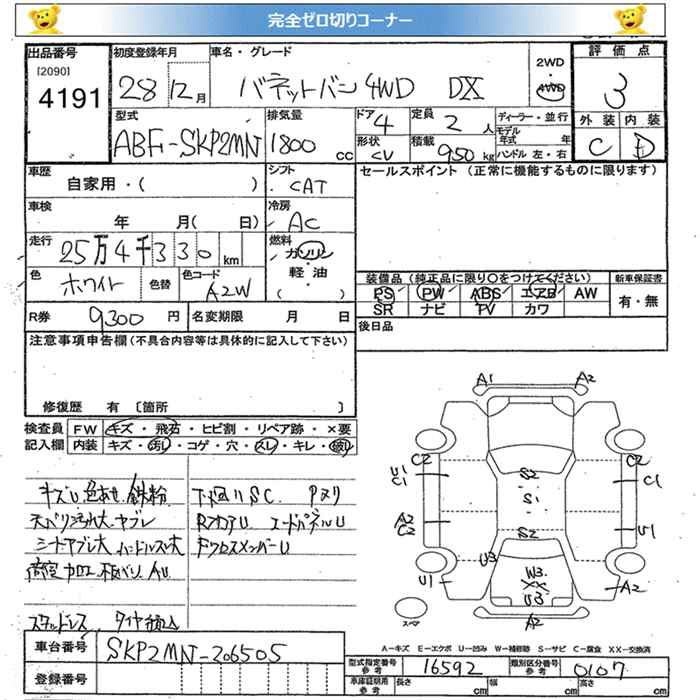 完全ゼロ切りコーナー
出品番号
[2090]
4191
初度登録年月
28 12月
車名・グレード
バネットバン 4WD DX
2WD
・
4WD
評価点
3
外装 内装
C D
型式
ABF-SKP2MN
排気量
1800 cc
ドア
4
形状
CV
定員
2 人
積載
950 kg
ディーラー・並行
モデル年式 年
ハンドル 左・右
車歴
自家用・( )
シフト
CAT
車検
年 月( 日)
冷房
AC
走行
25万4千330 km
燃料
ガソリン
・
軽油
( )
色
ホワイト
色替
色コード
A2W
セールスポイント (正常に機能するものに限ります)
装備品 (純正品に限り○をつけてください)
PS PW ABS エアB AW
SR ナビ TV カワ
新車保証書
有・無
R券 9300 円
名変期限 月 日
後日品
注意事項申告欄(不具合内容等は具体的に記入して下さい)
修復歴 有 〔箇所 〕
検査員 FW キズ・飛石・ヒビ割・リペア跡・×要
記入欄 内装 キズ・汚れ・コゲ・穴・スレ・キレ・破れ
キズU 色あせ 鉄粉
下廻りSC Pヌリ
天バリ汚れ大 ヤブレ
RフロアU エードパネルU
シートヤブレ大 ハンドルスレ大
FクロスメンバーU
荷室加工
AU
スタッドレス タイヤ積込
A1 A2
C2 C2
U1
C1 C1
S2
S1
A2
C2 U1
S2
U3
U1 W3 A2
XX
U3
スペア A2
A-キズ E-エクボ U-凹み W-補修跡 S-サビ C-腐食 XX-交換済
車台番号
SKP2MN-206505
登録番号
型式指定番号
参考
16592
類別区分番号
参考
0107
車庫証明用
参考
長さ cm 幅 cm 高さ cm